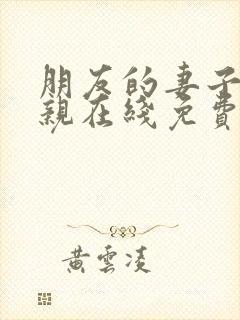 朋友的妻子
親在綫免費
黃雲凌